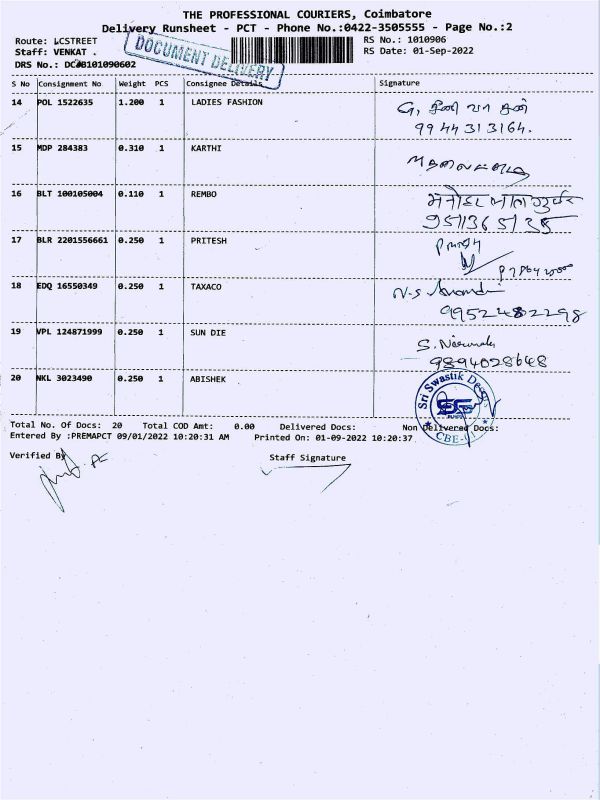 THE PROFESSIONAL COURIERS, Coimbatore
Delivery Runsheet - PCT - Phone No.:0422-3505555 - Page No.:2
Route: LCSTREET
RS No.: 1010906
Staff: VENKAT .
RS Date: 01-Sep-2022
DRS No.:
DOCUMENT DELIVERY
S No Consignment No Weight PCS Consignee Details Signature
14 POL 1522635 1.200 1 LADIES FASHION
99 44 31 3164.
15 MDP 284383 0.310 1 KARTHI
16 BLT 100105004 0.110 1 REMBO
17 BLR 2201556661 0.250 1 PRITESH
18 EDQ 16550349 0.250 1 TAXACO
N.S
9952482298
19 VPL 124871999 0.250 1 SUN DIE
S.
9894028648
20 NKL 3023490 0.250 1 ABISHEK
Sri Swastik
CBE-
Total No. Of Docs: 20 Total COD Amt: 0.00 Delivered Docs: Non Delivered Docs:
Entered By :PREMAPCT 09/01/2022 10:20:31 AM Printed On: 01-09-2022 10:20:37
Verified By
Staff Signature